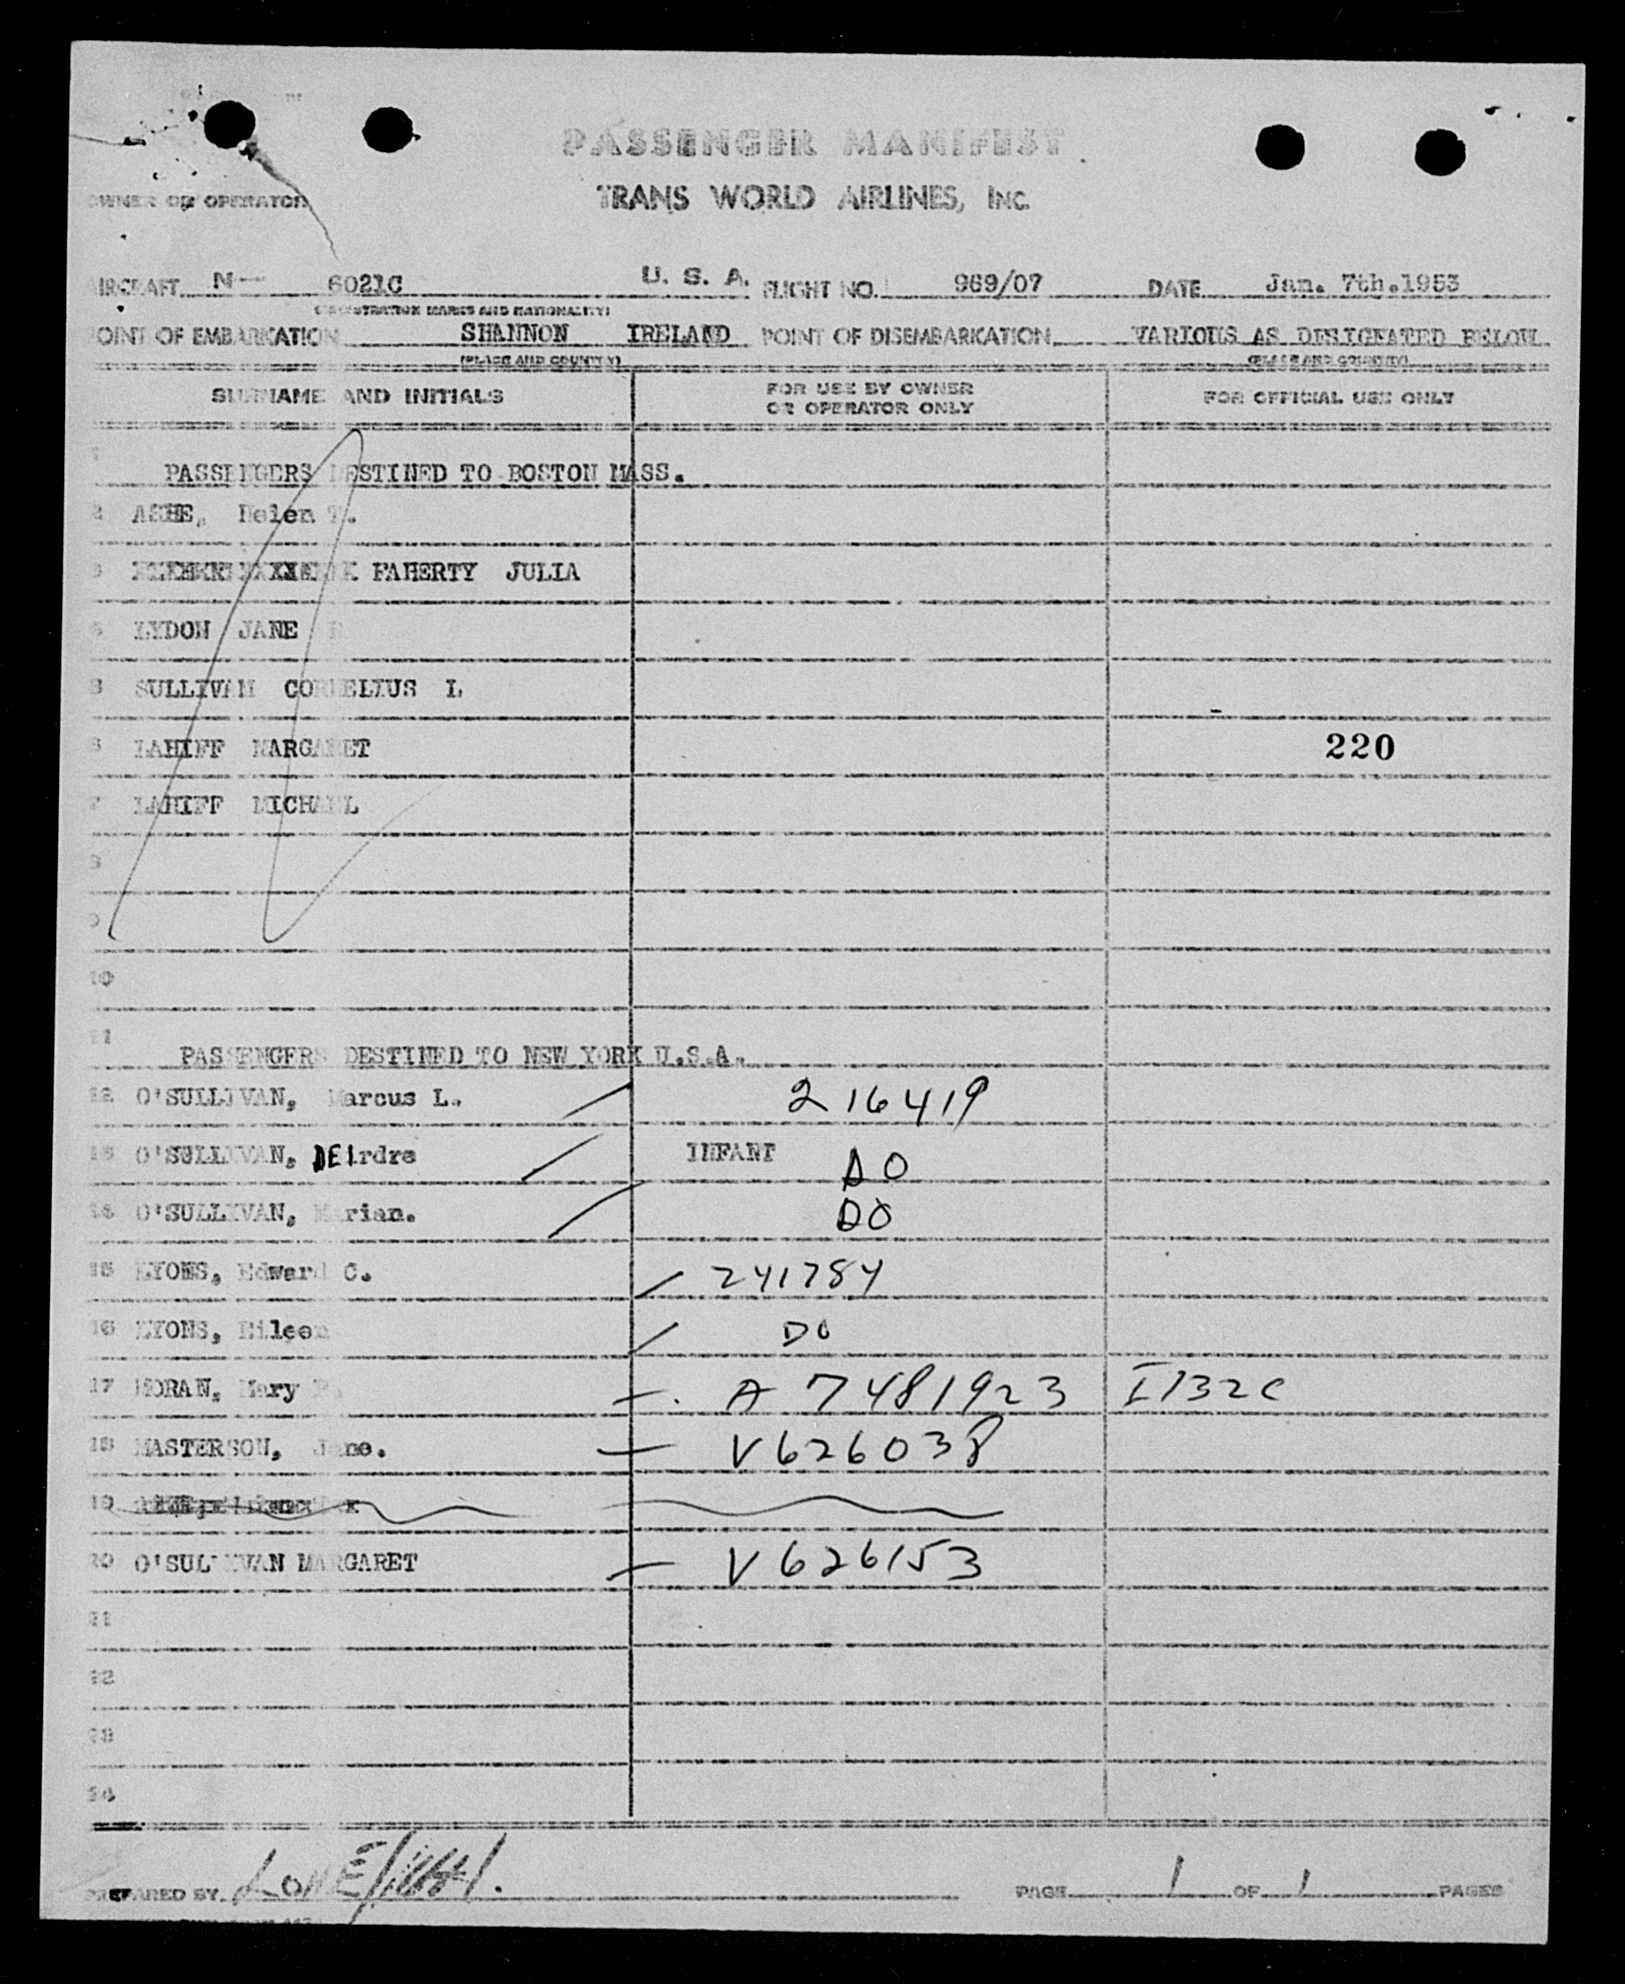 PASSENGER MANIFEST
TRANS WORLD AIRLINES, INC.
OWNER OR OPERATOR
AIRCRAFT N— 6021C U. S. A. FLIGHT NO. 969/07 DATE Jan. 7th.1953
(REGISTRATION MARKS AND NATIONALITY)
POINT OF EMBARKATION SHANNON IRELAND POINT OF DISEMBARKATION VARIOUS AS DESIGNATED BELOW
(PLACE AND COUNTRY) (PLACE AND COUNTRY)
SURNAME AND INITIALS FOR USE BY OWNER OR OPERATOR ONLY FOR OFFICIAL USE ONLY
1 PASSENGERS DESTINED TO BOSTON MASS.
2 ASHE, Helen T.
3 FAHERTY JULIA
4 LYDON JANE
5 SULLIVAN CORNELIUS L
6 LAHIFF MARGARET 220
7 LAHIFF MICHAEL
8
9
10
11 PASSENGERS DESTINED TO NEW YORK U.S.A.
12 O'SULLIVAN, Marcus L. 216419
13 O'SULLIVAN, DEirdre INFANT DO
14 O'SULLIVAN, Marian. DO
15 LYONS, Edward C. 241784
16 LYONS, Eileen DO
17 MORAN, Mary A 7481923 I132C
18 MASTERSON, Jane. V626038
19
20 O'SULLIVAN MARGARET V626153
21
22
23
24
PREPARED BY PAGE 1 OF 1 PAGES